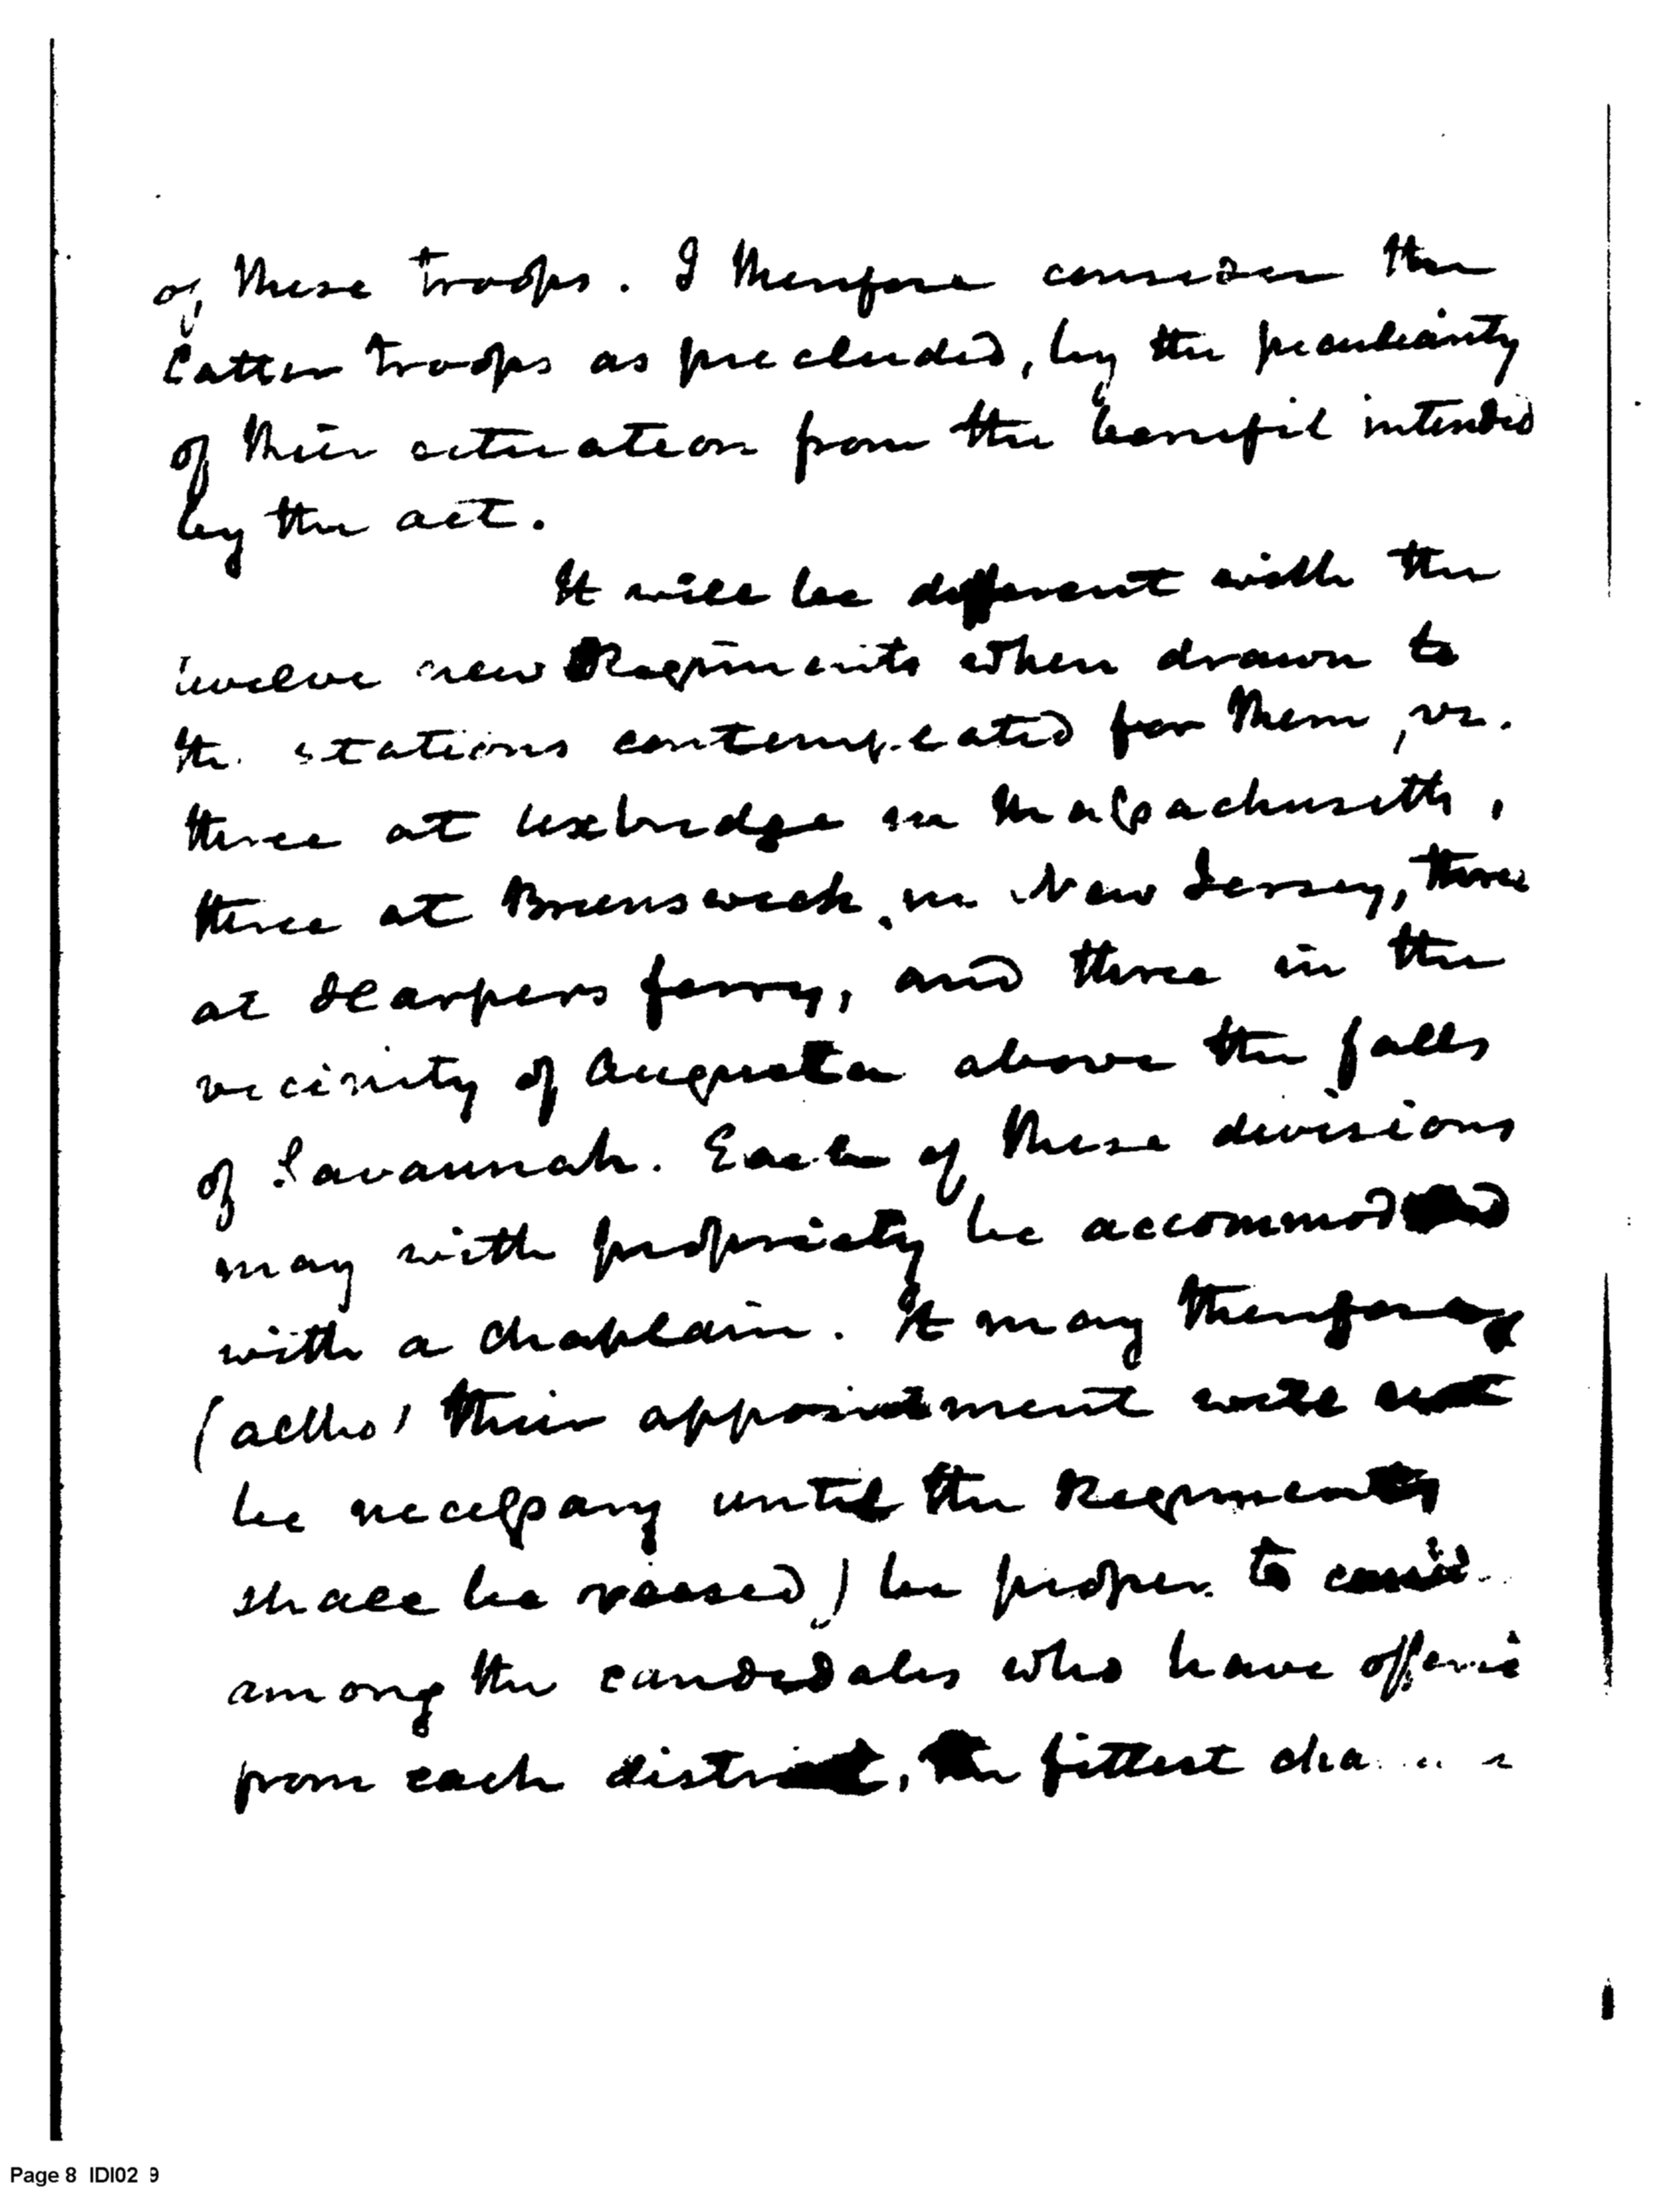 of these troops. I therefore consider the
latter troops as precluded, by the peculiarity
of their situation from the benefit intended
by the act.
It will be different with the
twelve new Regiments when drawn to
the stations contemplated for them, vz.
three at Uxbridge in Massachusetts,
three at Brunswick in New Jersey, three
at Harpers ferry, and three in the
vicinity of Augusta above the falls
of Savannah. Each of these divisions
may with propriety be accommodated
with a chaplain. It may therefore
(altho' their appointment will not
be necessary until the Regiments
shall be raised) be proper to
among the candidates who have offered
from each district, the fittest
Page 8 IDI02 9